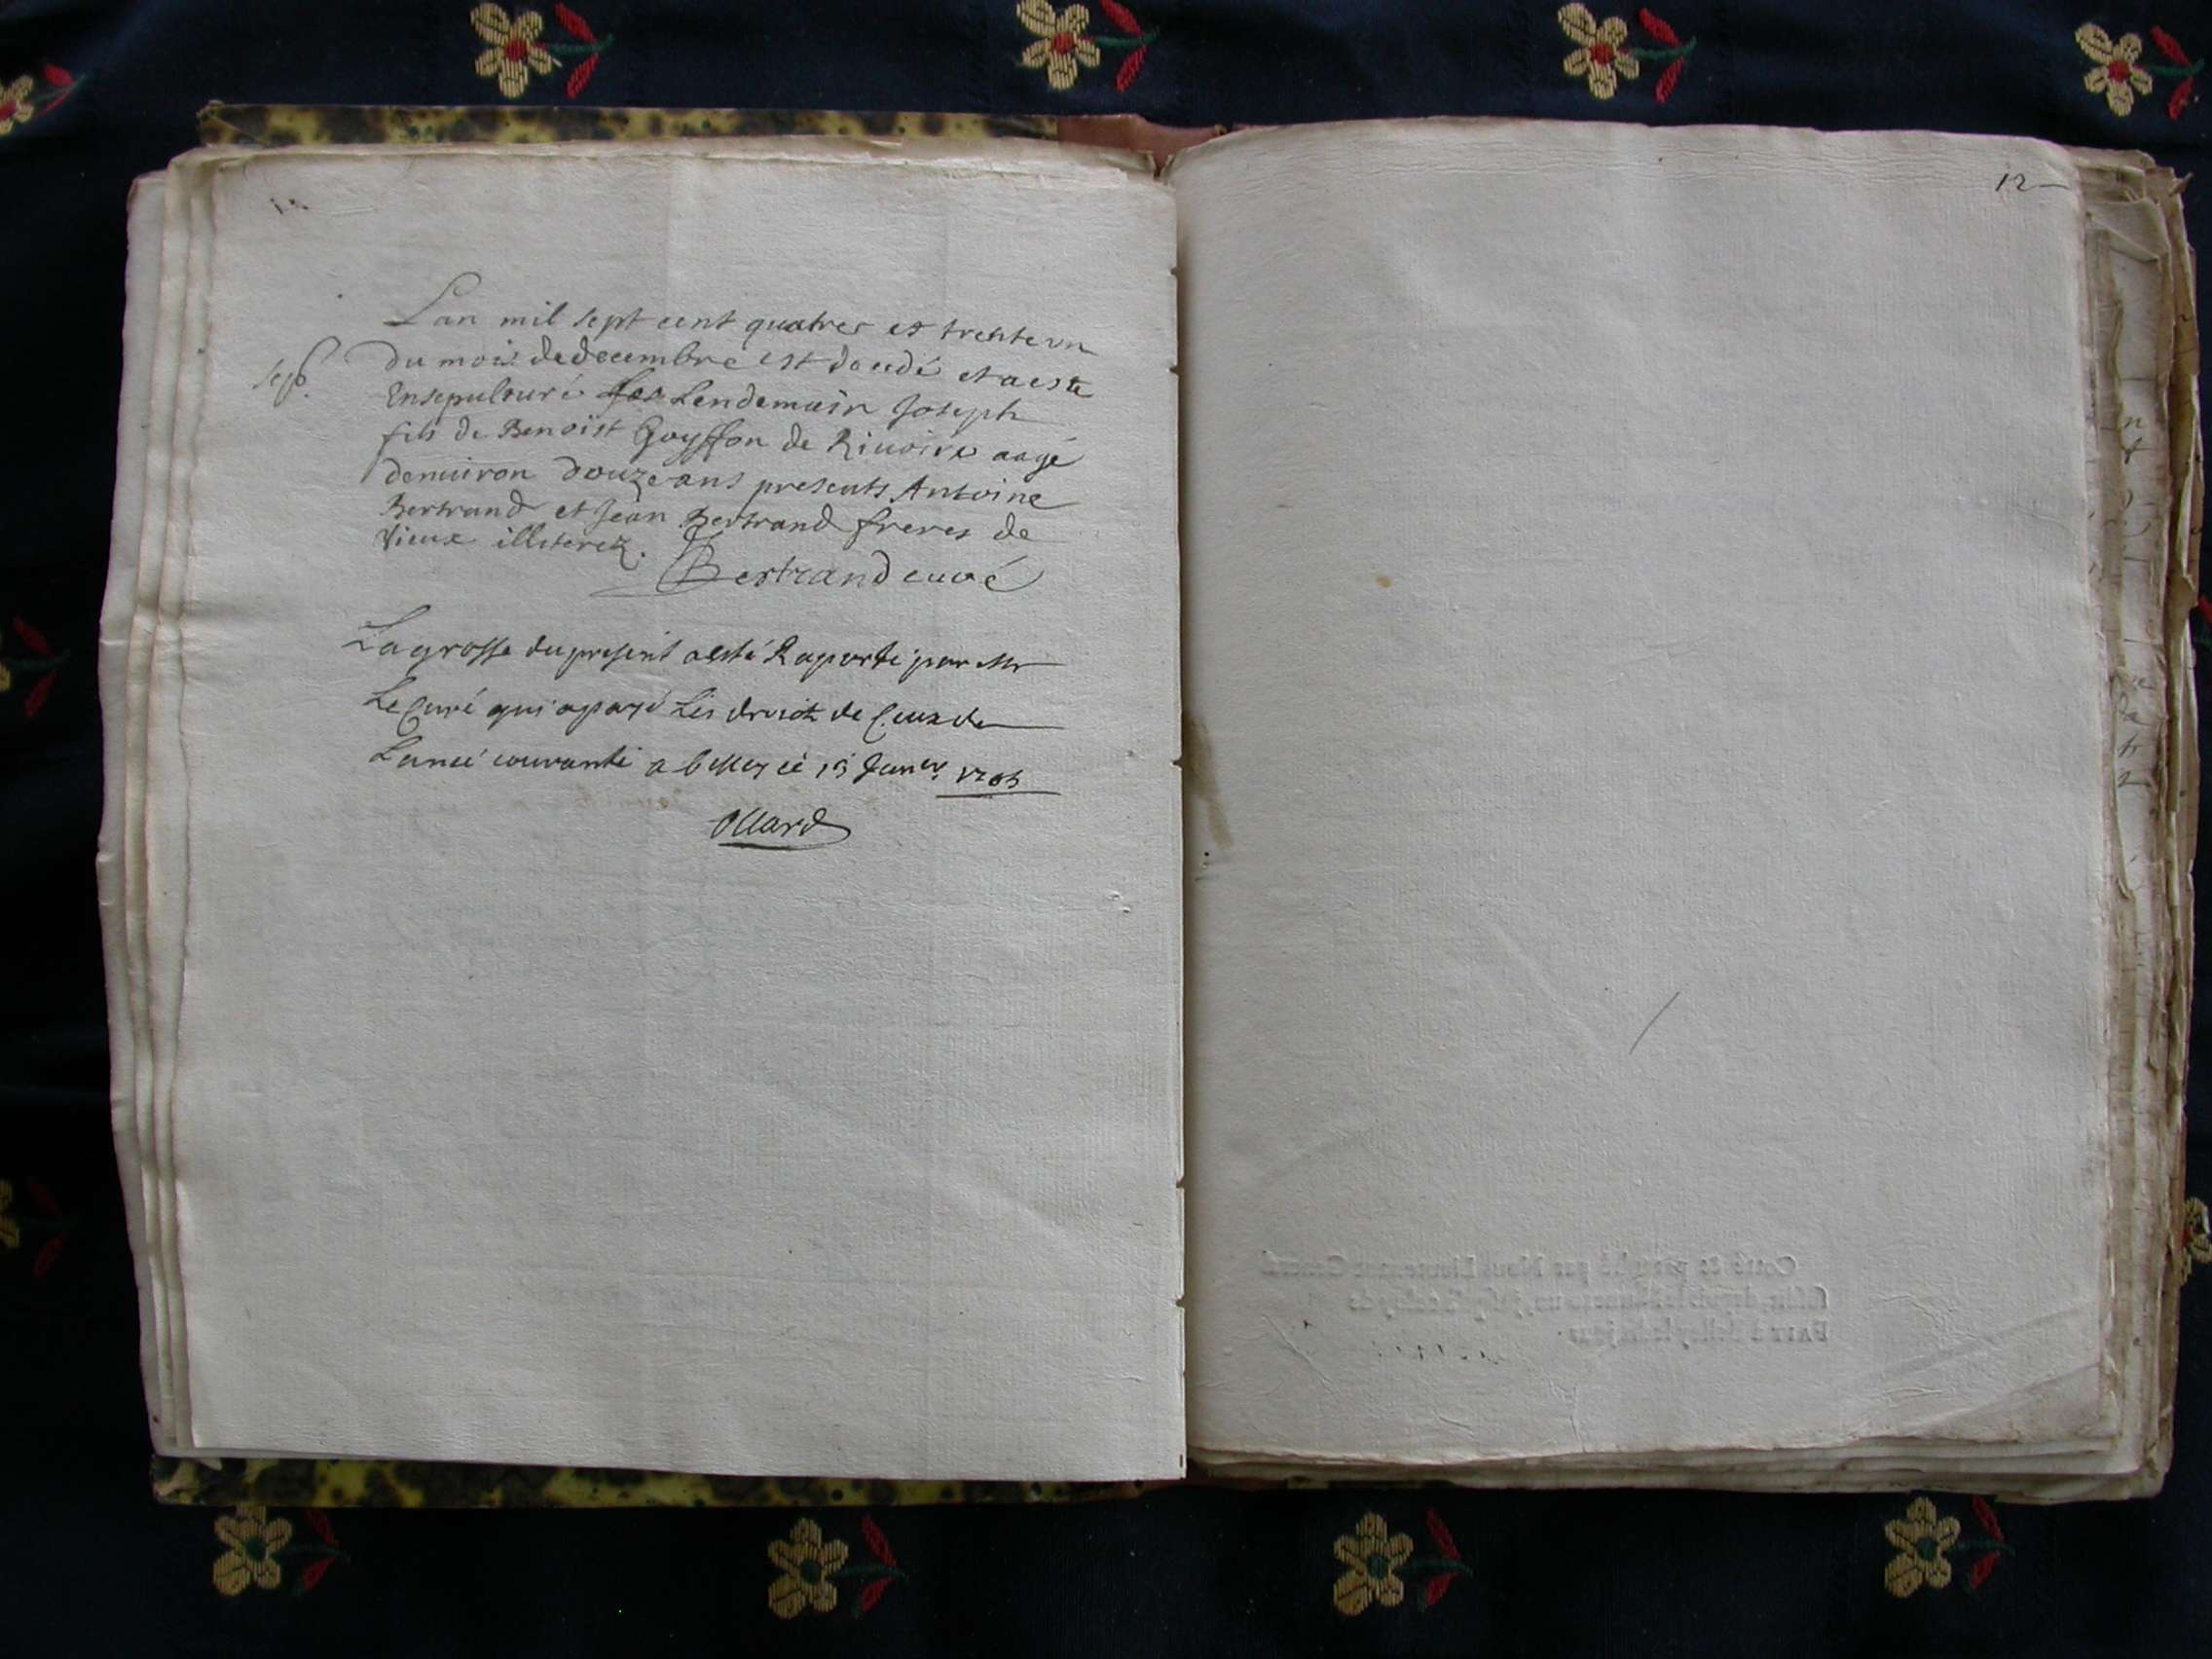 12
Lan mil sept cent quatres et trente un
du mois de decembre est decedé et a esté
Sep.
Ensepulturé Lendemain Joseph
fils de Benoist Goysson de Rivoire aagé
denuiron douze ans presents Antoine
Bertrand et Jean Bertrand freres de
Vieux illiterez.
Bertrand curé
La grosse du present a esté Raporté par Mr
Le Curé qui a payé Les droicts de de
Lanneé couranté a belley cé 15 Janer. 1705
Ollard
Cotté & paraphé par Nous Lieutenant General
Fait à Belley